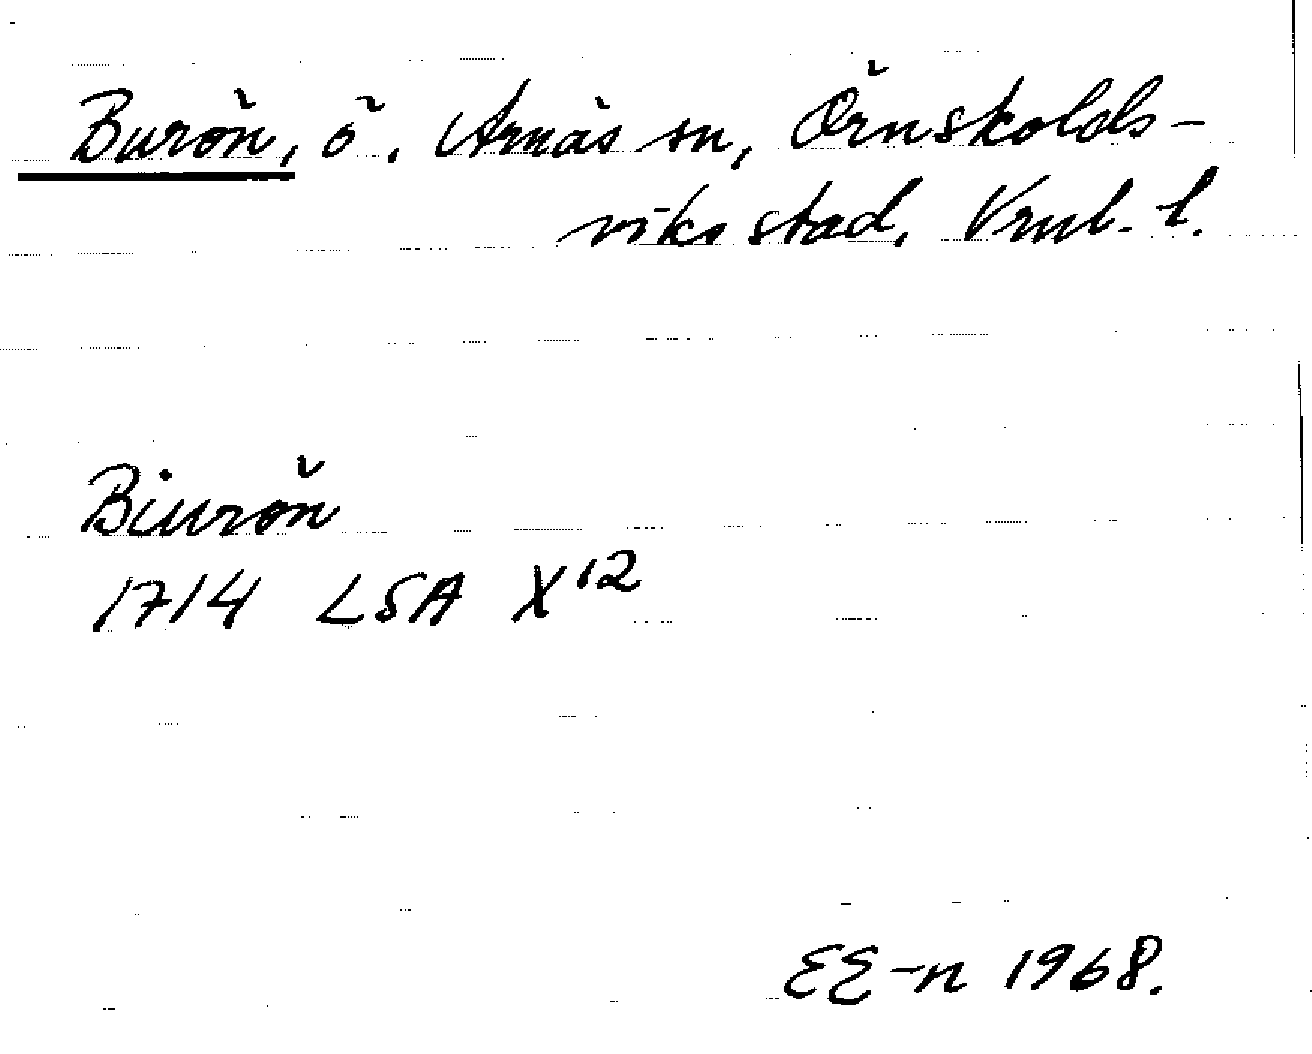 Burön, ö, Arnäs sn, Örnskölds-
viks stad, Vrnl. l.
Biurön
1714 LSA X12
EE-n 1968.